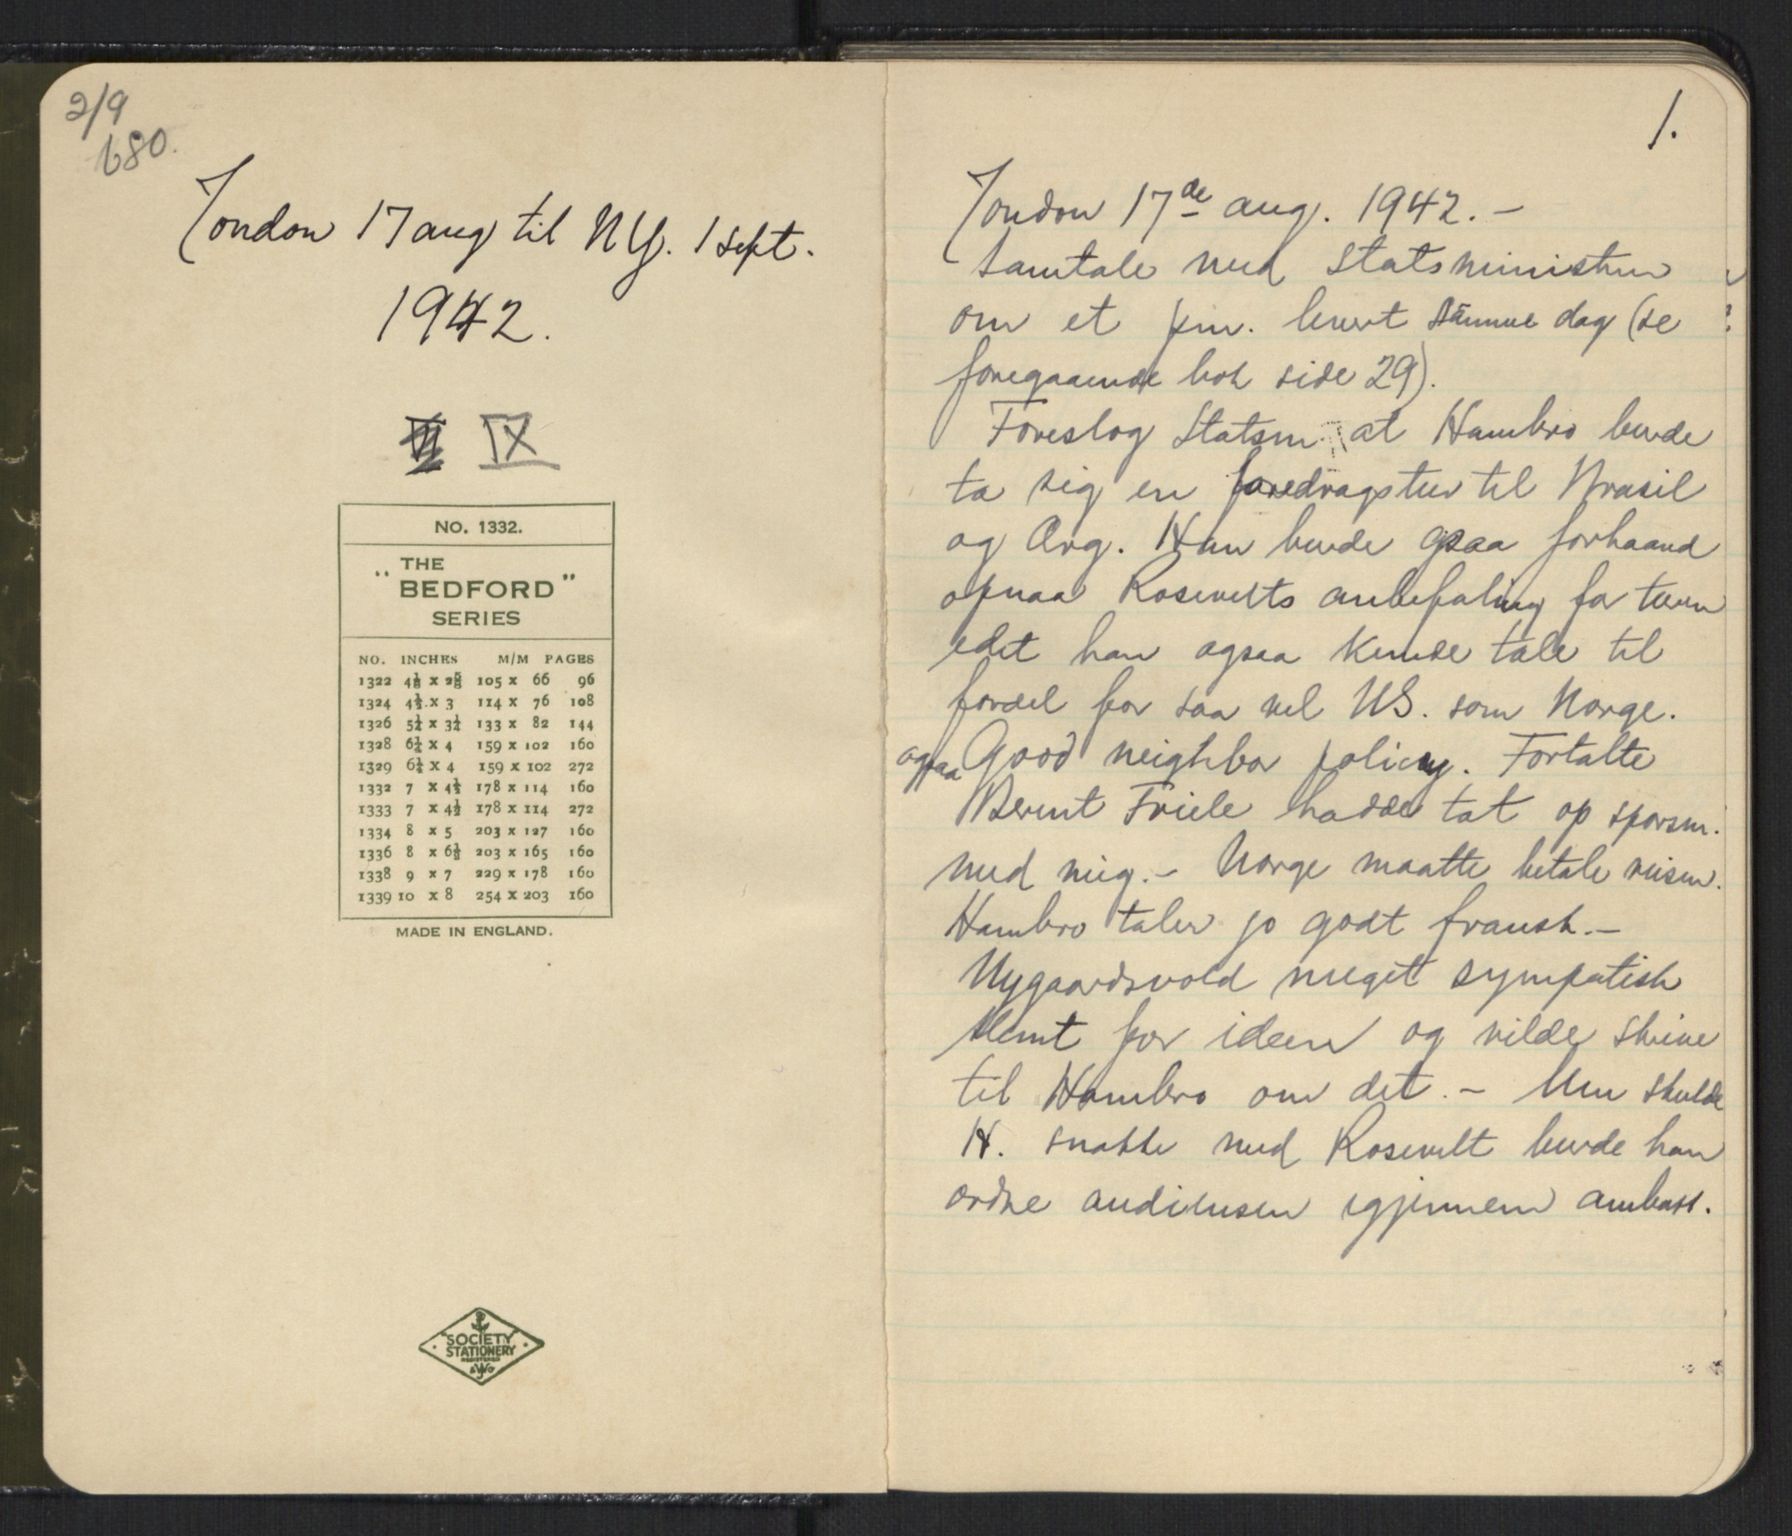 2/9
680.
London 17 aug til N.Y. 1 sept.
1942.
IX
NO. 1332.
"THE
BEDFORD"
SERIES
NO. INCHES M/M PAGES
1322 4⅛ x 2⅝ 105 x 66 96
1324 4½ x 3 114 x 76 108
1326 5¼ x 3¼ 133 x 82 144
1328 6¼ x 4 159 x 102 160
1329 6¼ x 4 159 x 102 272
1332 7 x 4½ 178 x 114 160
1333 7 x 4½ 178 x 114 272
1334 8 x 5 203 x 127 160
1336 8 x 6½ 203 x 165 160
1338 9 x 7 229 x 178 160
1339 10 x 8 254 x 203 160
MADE IN ENGLAND.
SOCIETY
STATIONERY
REGISTERED
1.
London 17de aug. 1942. –
Samtale med Statsministeren
om et pm. levert samme dag (se
foregaaende bok side 29).
Foreslog Statsm. at Hambro burde
ta sig en foredragstur til Brasil
og Arg. Han burde ogsaa forhaand
opnaa Rosevelts anbefaling for turen
idet han ogsaa kunde tale til
fordel for saa vel US. som Norge.
ogsaa Good neighbor policy. Fortalte
Bernt Friele hadde tat op sporsm.
med mig. – Norge maatte betale reisen.
Hambro taler jo godt fransk. –
Nygaardsvold meget sympatisk
stemt for ideen og vilde skrive
til Hambro om det. – Men skulde
H. snakke med Rosevelt burde han
ordne audiensen igjennem ambass.